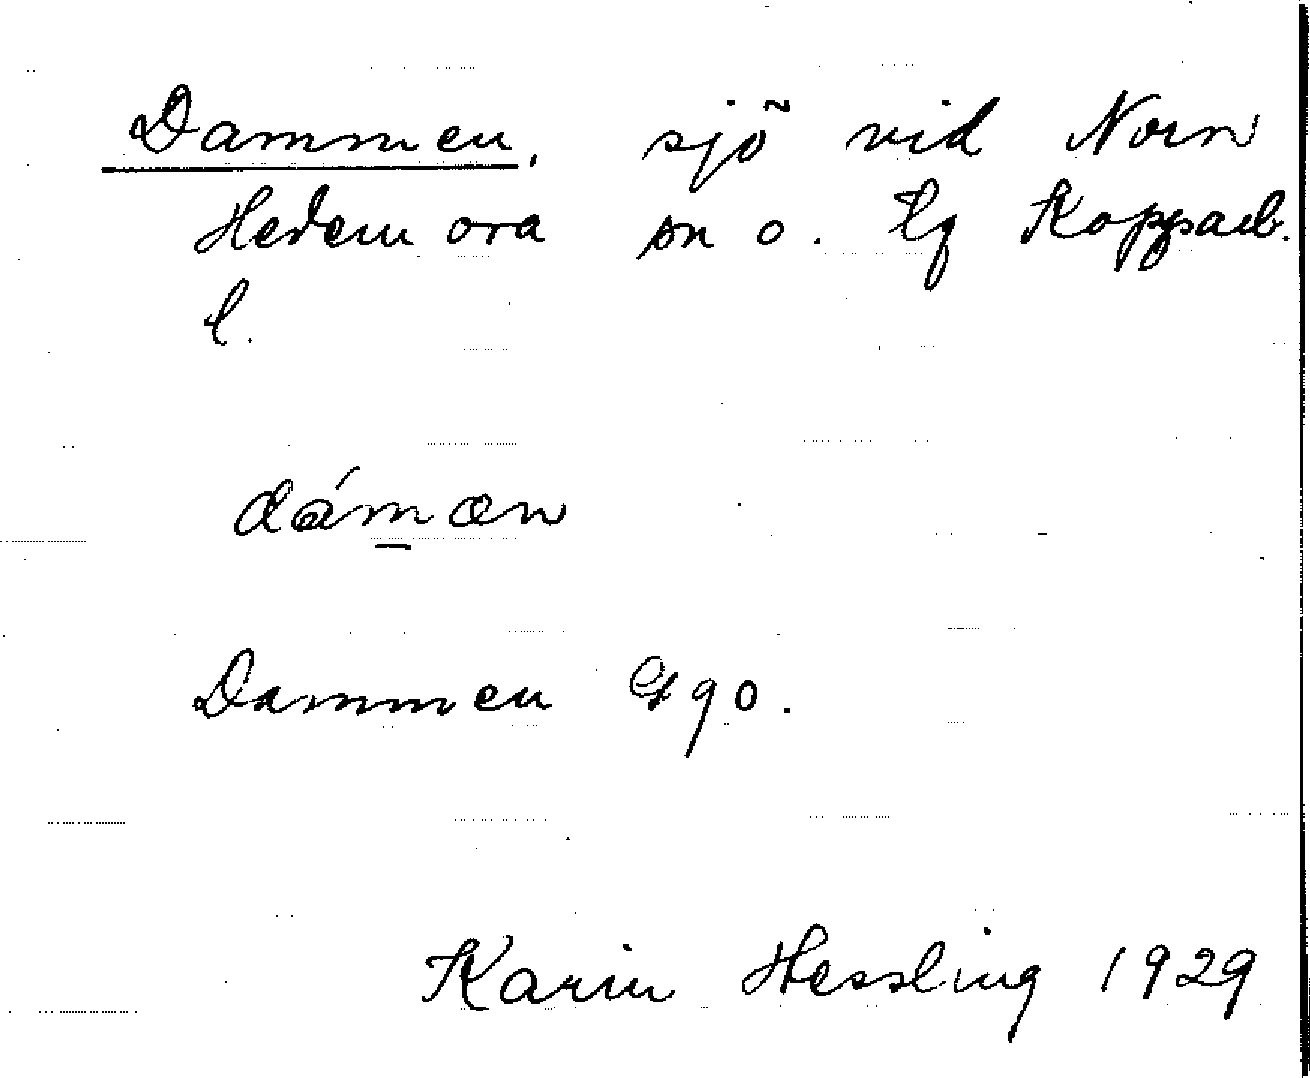 Dammen, sjö vid Norn
Hedemora sn o. tg Kopparb.
l.
dámæn
Dammen Gg 90.
Karin Hessling 1929